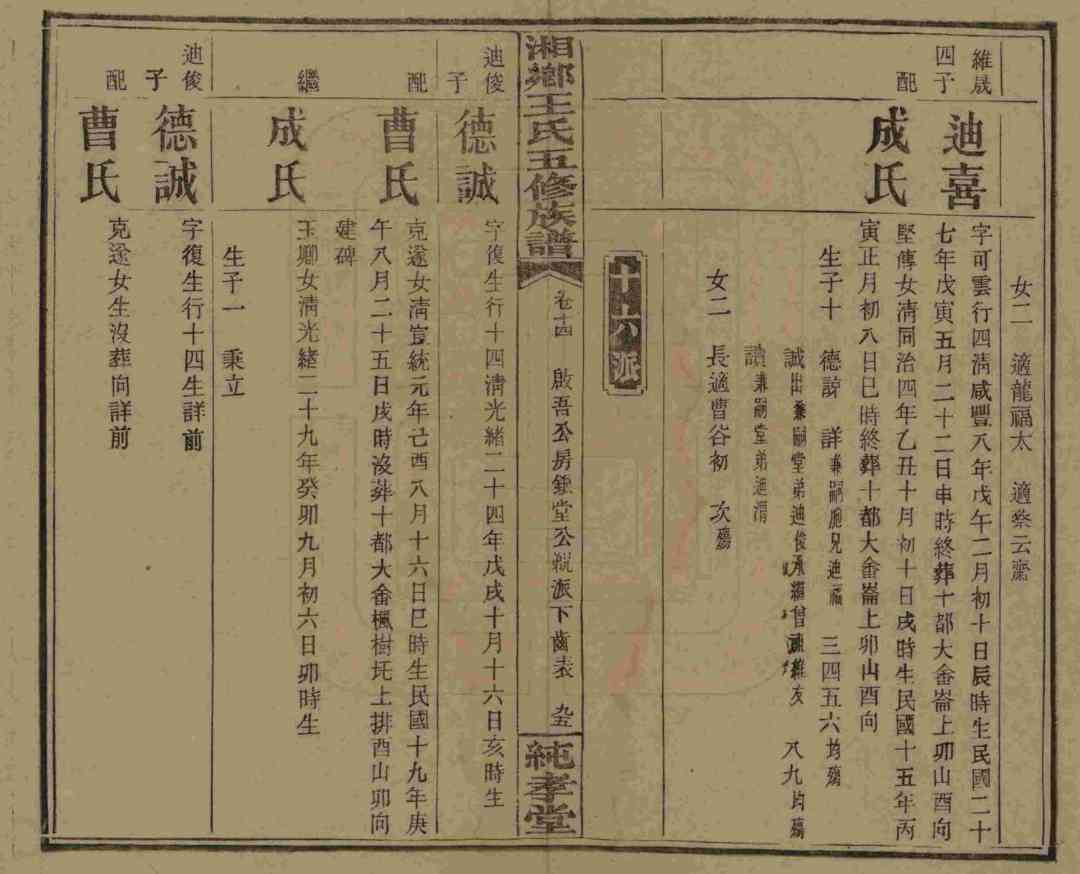 女二 適龍福太 適蔡云齋
維晟四子 迪喜 字可雲行四清咸豐八年戊午二月初十日辰時生民國二十
七年戊寅五月二十二日申時終葬十都大畬崙上卯山酉向
配 成氏 堅傳女清同治四年乙丑十月初十日戌時生民國十五年丙
寅正月初八日巳時終葬十都大畬崙上卯山酉向
生子十 德諒 詳兼嗣胞兄迪福 三四五六均殤
誠出兼嗣堂弟迪俊承繼曾祖維友 八九均殤
讀兼嗣堂弟迪渭
女二 長適曹谷初 次殤
十六派
湘鄉王氏五修族譜 卷十四 啟吾公房鎮堂公親派下齒表 九五 純孝堂
迪俊子 德誠 字復生行十四清光緒二十四年戊戌十月十六日亥時生
配 曹氏 克遂女清宣統元年己酉八月十六日巳時生民國十九年庚
午八月二十五日戌時沒葬十都大畬楓樹圫上排酉山卯向
建碑
繼 成氏 玉卿女清光緒二十九年癸卯九月初六日卯時生
生子一 秉立
迪俊子 德誠 字復生行十四生詳前
配 曹氏 克遂女生沒葬向詳前